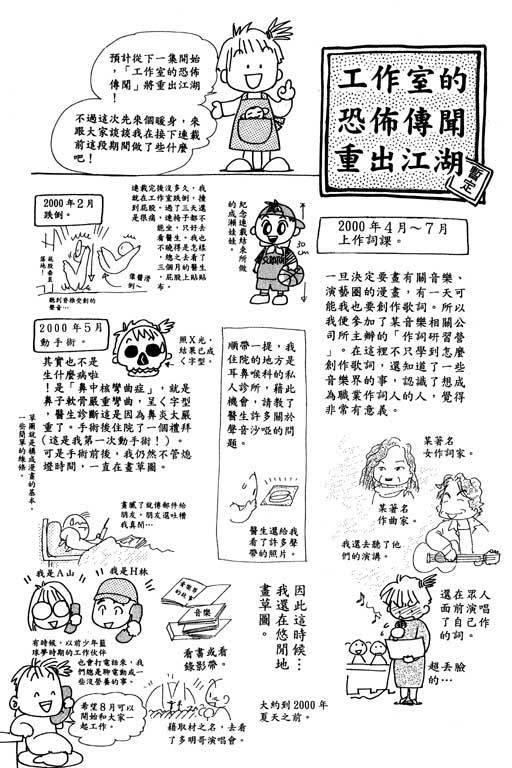 工作室的
恐佈傳聞
重出江湖
暫定
預計從下一集開始
，「工作室的恐佈
傳聞」將重出江湖
！
不過這次先來個暖身，來
跟大家談談我在接下連載
前這段期間做了些什麼
吧！
2000年2月
跌倒。
連載完後沒多久，我
就在工作室跌倒，撞
到屁股。過了三天還
是很痛，連椅子都不
能坐，只好去
看醫生。我也
不曉得是怎樣
，總之去看了
三個月的醫生
，屁股上貼貼
布。
屁股垂直
落地！
像醬滑
倒～
聽到脊椎受創的
聲音…
紀念連載結束所做
的成瀨娃娃。
30cm
2000年4月～7月
上作詞課。
一旦決定要畫有關音樂、
演藝圈的漫畫，有一天可
能我也要創作歌詞。所以
我便參加了某音樂相關公
司所主辦的「作詞研習營
」。在這裡不只學到怎麼
創作歌詞，還知道了一些
音樂界的事，認識了想成
為職業作詞人的人，覺得
非常有意義。
2000年5月
動手術。
照X光，
結果已成
ㄑ字型。
其實也不是
生什麼病啦
！是「鼻中核彎曲症」，就是
鼻子軟骨嚴重彎曲，呈ㄑ字型
，醫生診斷這是因為鼻炎太嚴
重了。手術後住院了一個禮拜
（這是我第一次動手術！）。
可是手術前後，我仍然不管熄
燈時間，一直在畫草圖。
草圖就是構成漫畫的基本，
一些簡單的線條。
畫膩了就傳郵件給
朋友，朋友還吐槽
我真閒…
順帶一提，我
住院的地方是
耳鼻喉科的私
人診所，藉此
機會，請教了
醫生許多關於
聲音沙啞的問
題。
醫生還給我
看了許多聲
帶的照片。
某著名
女作詞家。
某著名
作曲家。
我還去聽了他
們的演講。
還在眾人
面前演唱
了自己作
的詞。
超丟臉
的…
我是A山
我是H林
有時候，以前少年籃
球夢時期的工作伙伴
也會打電話來，我
們總是聊電動或一
些沒營養的事。
希望8月可以
開始和大家一
起工作。
音樂界
的故事
音樂
看書或看
錄影帶。
藉取材之名，去看
了多明哥演唱會。
因此這時候…
我還在悠閒地
畫草圖。
大約到2000年
夏天之前。